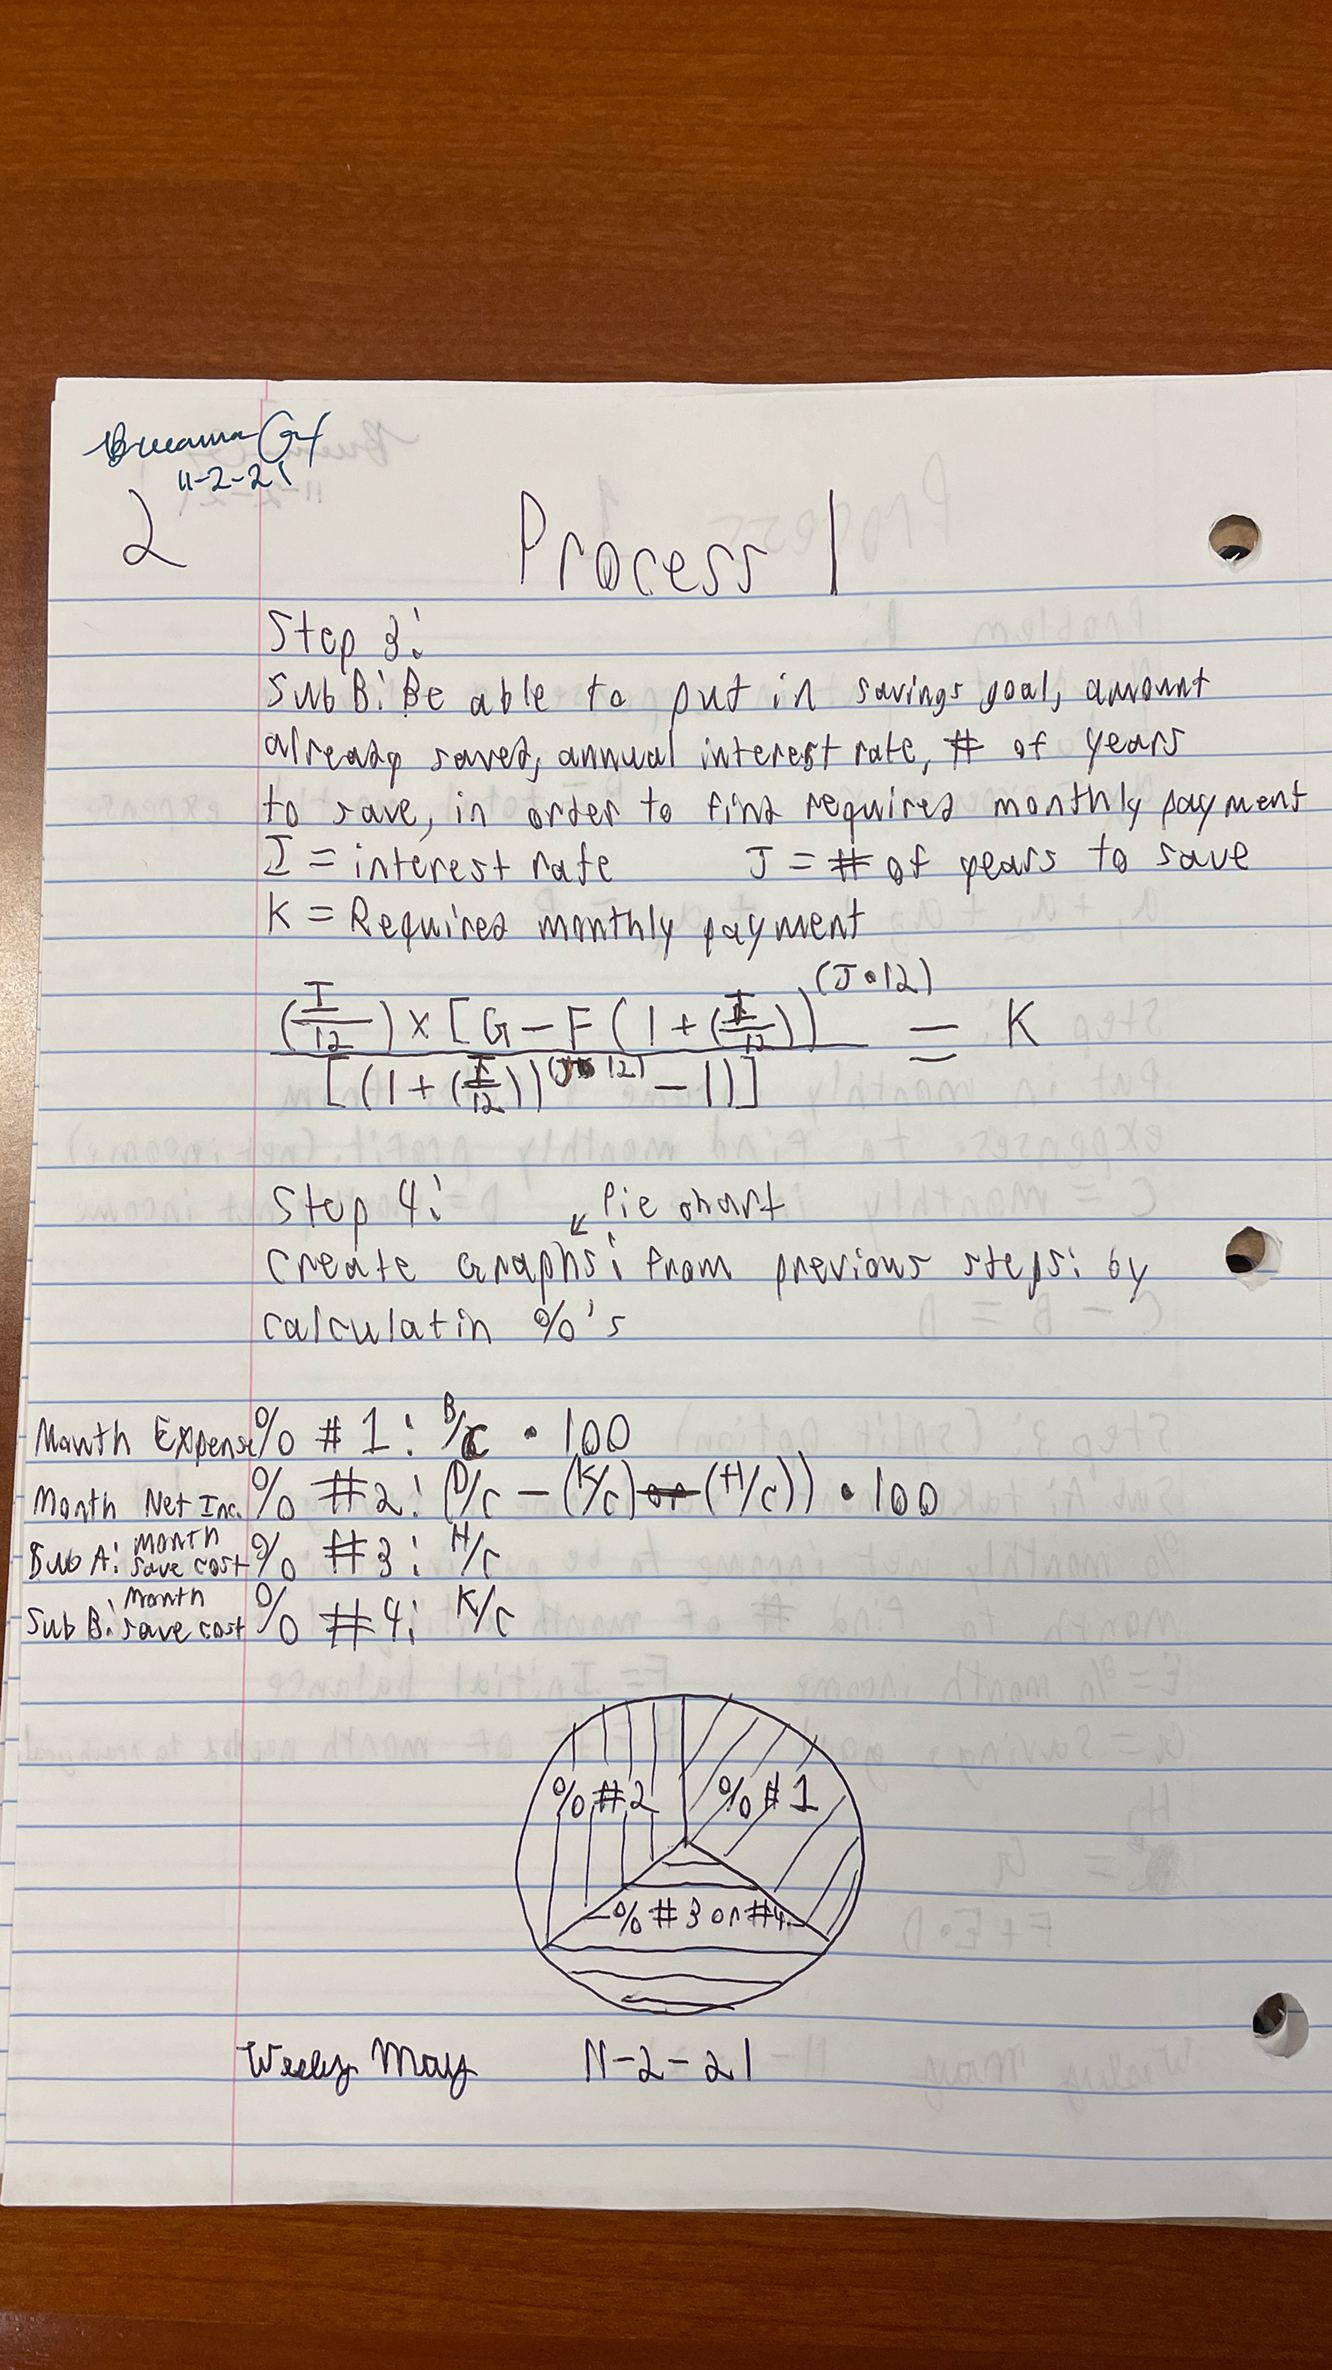 11-2-21
2 Process 1
Step 3:
Sub B: Be able to put in savings goal, amount
already saved, annual interest rate, # of years
to save, in order to find required monthly payment
I = interest rate J = # of years to save
K = Required monthly payment
(I/12) × [G - F (1 + (I/12))^(J•12) = K
[(1 + (I/12))^(J•12) - 1)]
Step 4: Pie chart
Create Graphs: from previous steps: by
calculatin %'s
Month Expense % #1: B/C • 100
Month Net Inc. % #2: (D/C - (K/C) or (H/C)) • 100
Sub A: month save cost % #3: H/C
Sub B: month save cost % #4: K/C
% #2 % #1
% #3 or #4
Wesley May 11-2-21